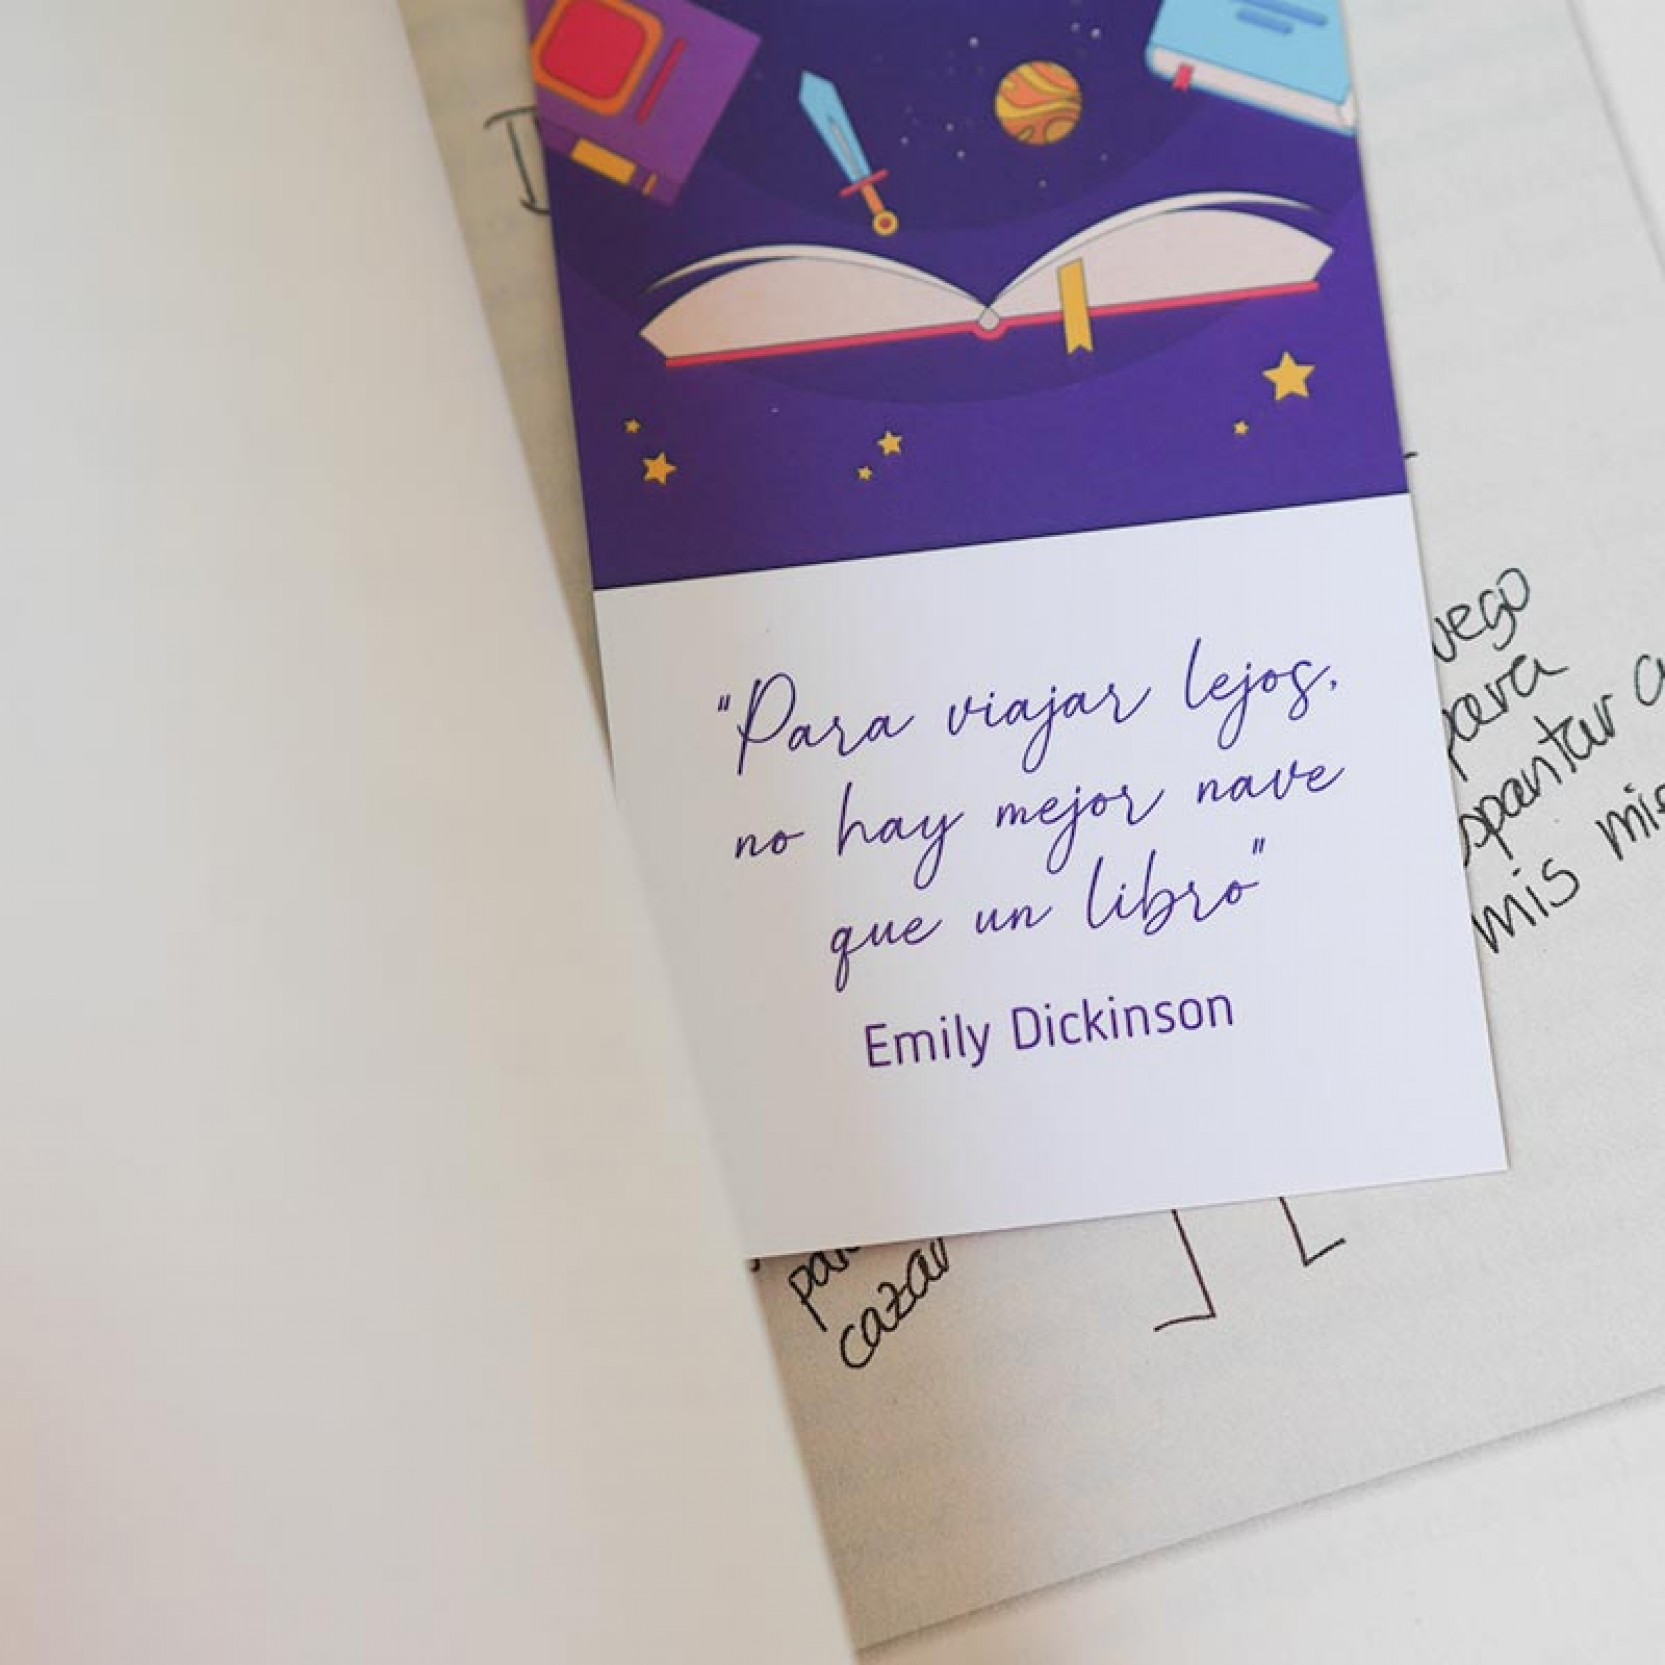 "Para viajar lejos,
no hay mejor nave
que un libro"
Emily Dickinson
para
mis
cazar